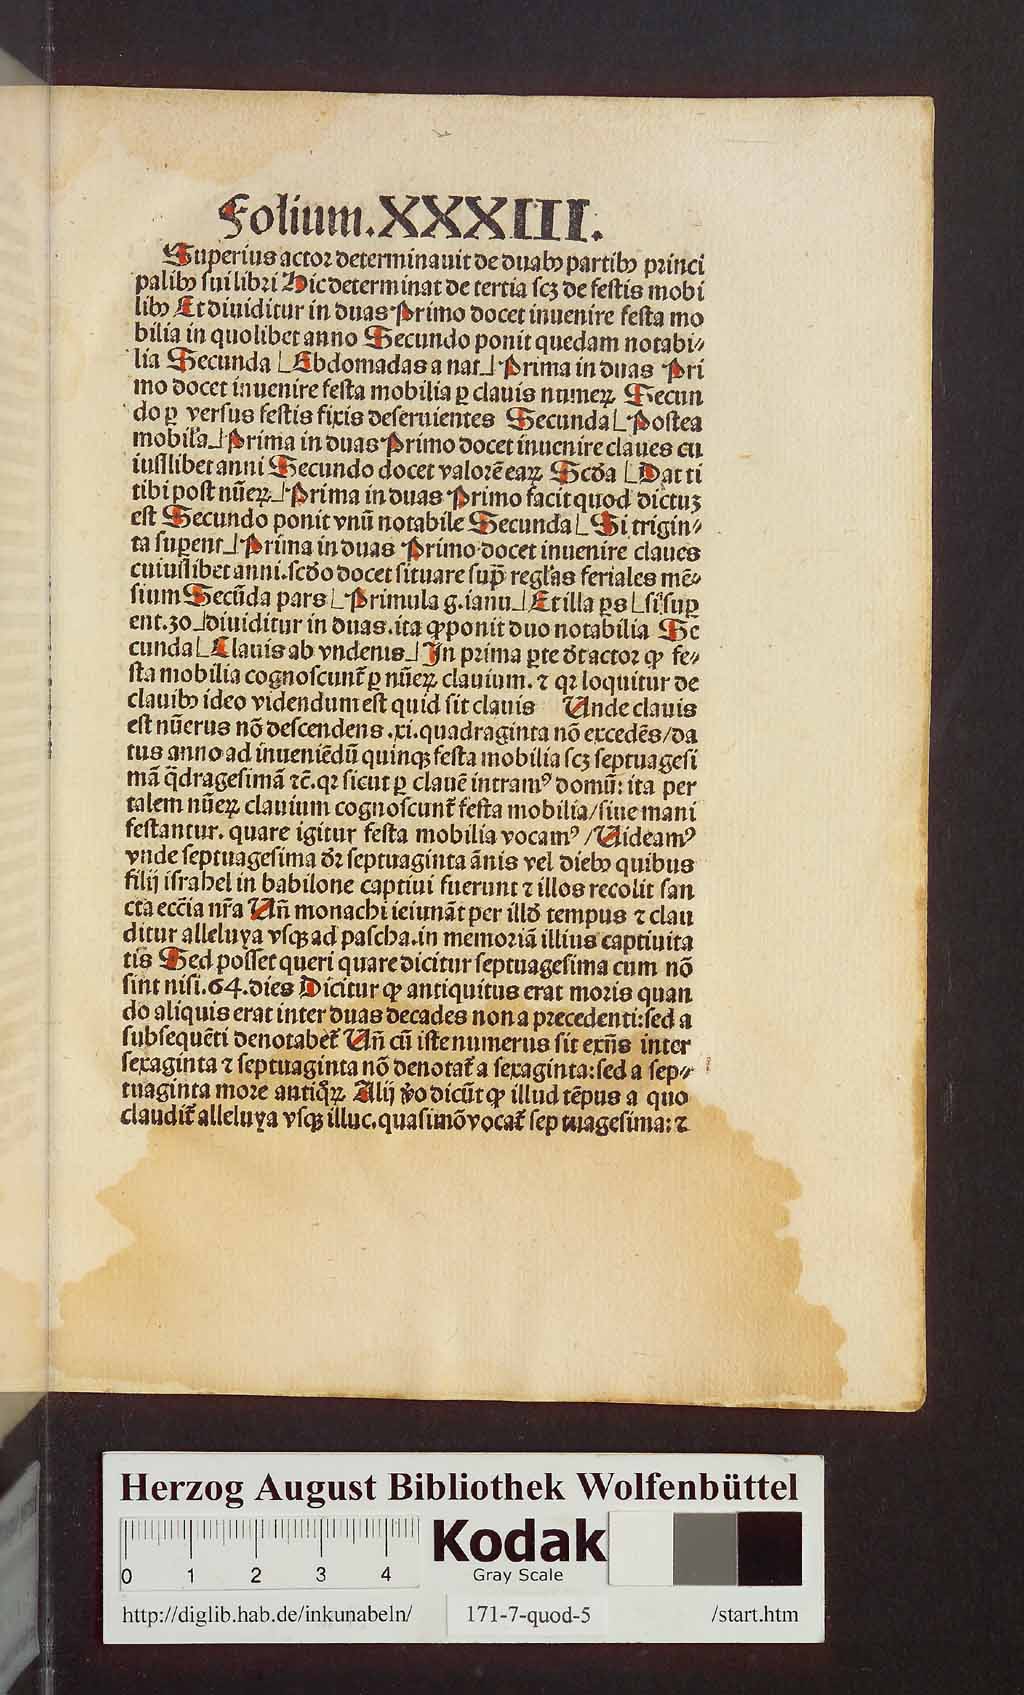 Folium.XXXIII.
Superius actor determinauit de duabꝰ partibꝰ princi
palibꝰ sui libri Hic determinat de tertia scꝫ de festis mobi
libꝰ Et diuiditur in duas Primo docet inuenire festa mo
bilia in quolibet anno Secundo ponit quedam notabi⸗
lia Secunda ⌊Ebdomadas a nat⌋ Prima in duas Pri
mo docet inuenire festa mobilia ꝑ clauis numeꝝ Secun
do ꝑ versus festis fixis deseruientes Secunda⌊Postea
mobil'a⌋Prima in duas Primo docet inuenire claues cu
iuslibet anni Secundo docet valorē eaꝝ Scďa ⌊Dat ti
tibi post nūeꝝ⌋ Prima in duas Primo facit quod dictuꝫ
est Secundo ponit vnū notabile Secunda⌊Si trigin⸗
ta supent⌋Prima in duas Primo docet inuenire claues
cuiuslibet anni.scďo docet situare sup̄ regl'as feriales mē⸗
sium Secūda pars ⌊Primula g.ianu⌋Et illa ꝑs⌊si suꝑ
ent.30⌋diuiditur in duas.ita ꝙ ponit duo notabilia Se
cunda⌊Clauis ab vndenis⌋In prima ꝑte ďt actor ꝙ fe⸗
sta mobilia cognoscunt᷑ ꝑ nūeꝝ clauium. ⁊ qꝛ loquitur de
clauibꝰ ideo videndum est quid sit clauis Unde clauis
est nūerus nō descendens .xi.quadraginta nō excedēs/da
tus anno ad inueniēdū quinqꝫ festa mobilia scꝫ septuagesi
mā q̄dragesimā ⁊c̄.qꝛ sicut ꝑ clauē intramꝰ domū: ita per
talem nūeꝝ clauium cognoscunt᷑ festa mobilia/siue mani
festantur. quare igitur festa mobilia vocamꝰ /Uideamꝰ
vnde septuagesima ďꝛ septuaginta ānis vel diebꝰ quibus
filij israhel in babilone captiui fuerunt ⁊ illos recolit san
cta ecc̄ia nr̄a Un̄ monachi ieiunāt per illď tempus ⁊ clau
ditur alleluya vsqꝫ ad pascha.in memoriā illius captiuita
tis Sed posset queri quare dicitur septuagesima cum nō
sint nisi.64.dies Dicitur ꝙ antiquitus erat moris quan
do aliquis erat inter duas decades non a precedenti:sed a
subsequēti denotabet᷑ Un̄ cū iste numerus sit exn̄s inter
sexaginta ⁊ septuaginta nō denotat᷑ a sexaginta:sed a sep⸗
tuaginta more antiq̊ꝝ Alij v̊o dicūt ꝙ illud tēpus a quo
claudit᷑ alleluya vsqꝫ illuc.quasimō vocat᷑ septuagesima: ⁊
Herzog August Bibliothek Wolfenbüttel
Kodak
Gray Scale
0 1 2 3 4
http://diglib.hab.de/inkunabeln/ 171-7-quod-5 /start.htm